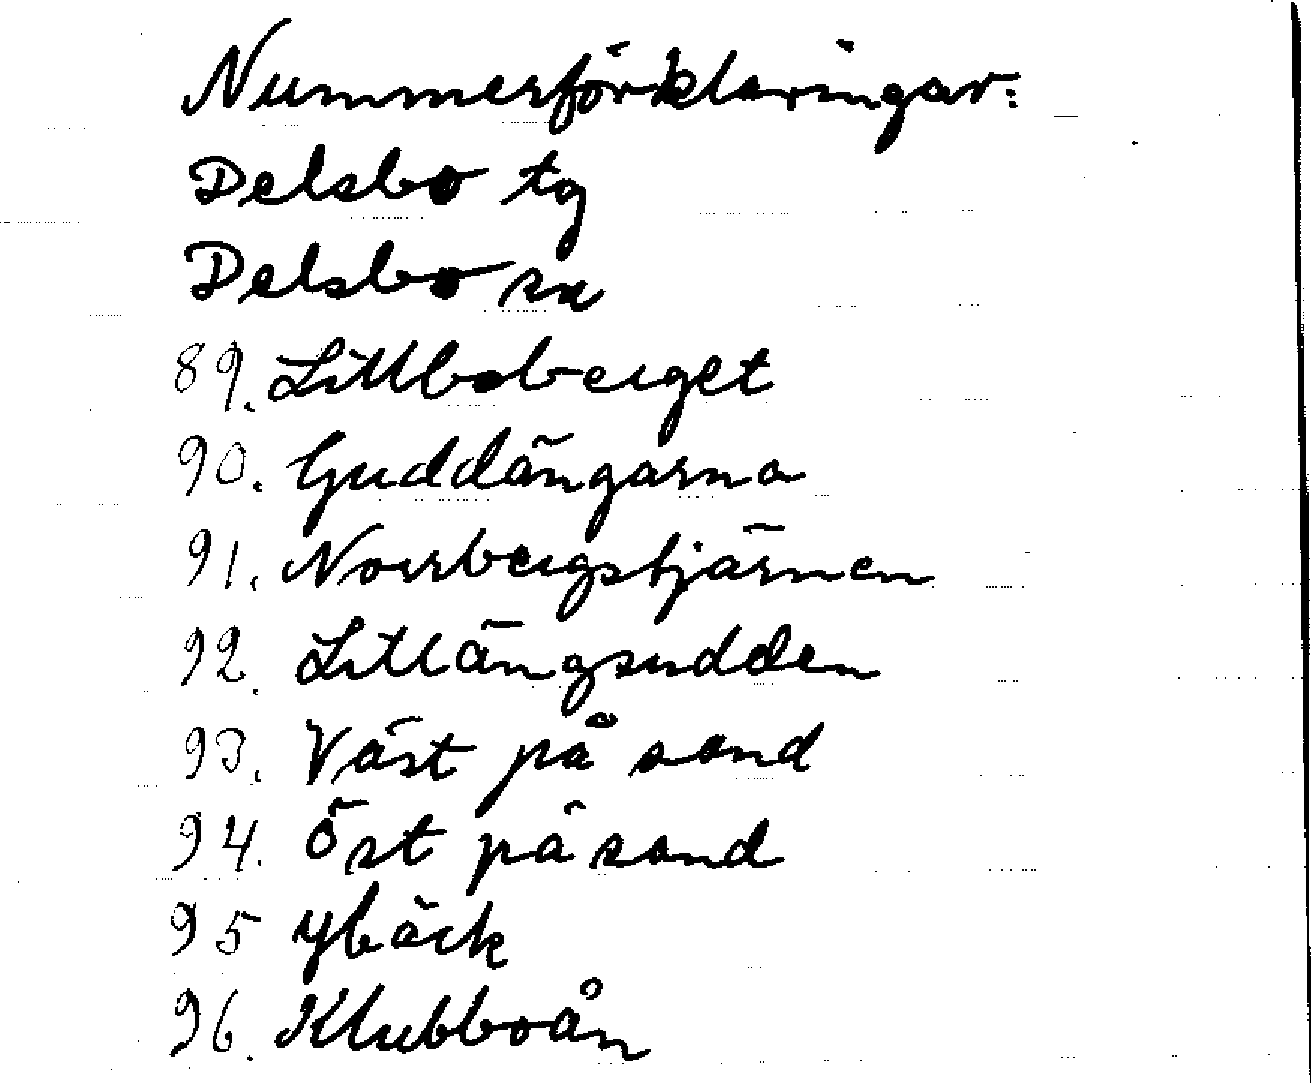 Nummerförklaringar:
Delsbo tg
Delsbo sn
89. Lillboberget
90. Guddängarna
91. Norrbergstjärnen
92. Lillängsudden
93. Väst på sand
94. Öst på sand
95 Ybäck
96. Klubboån